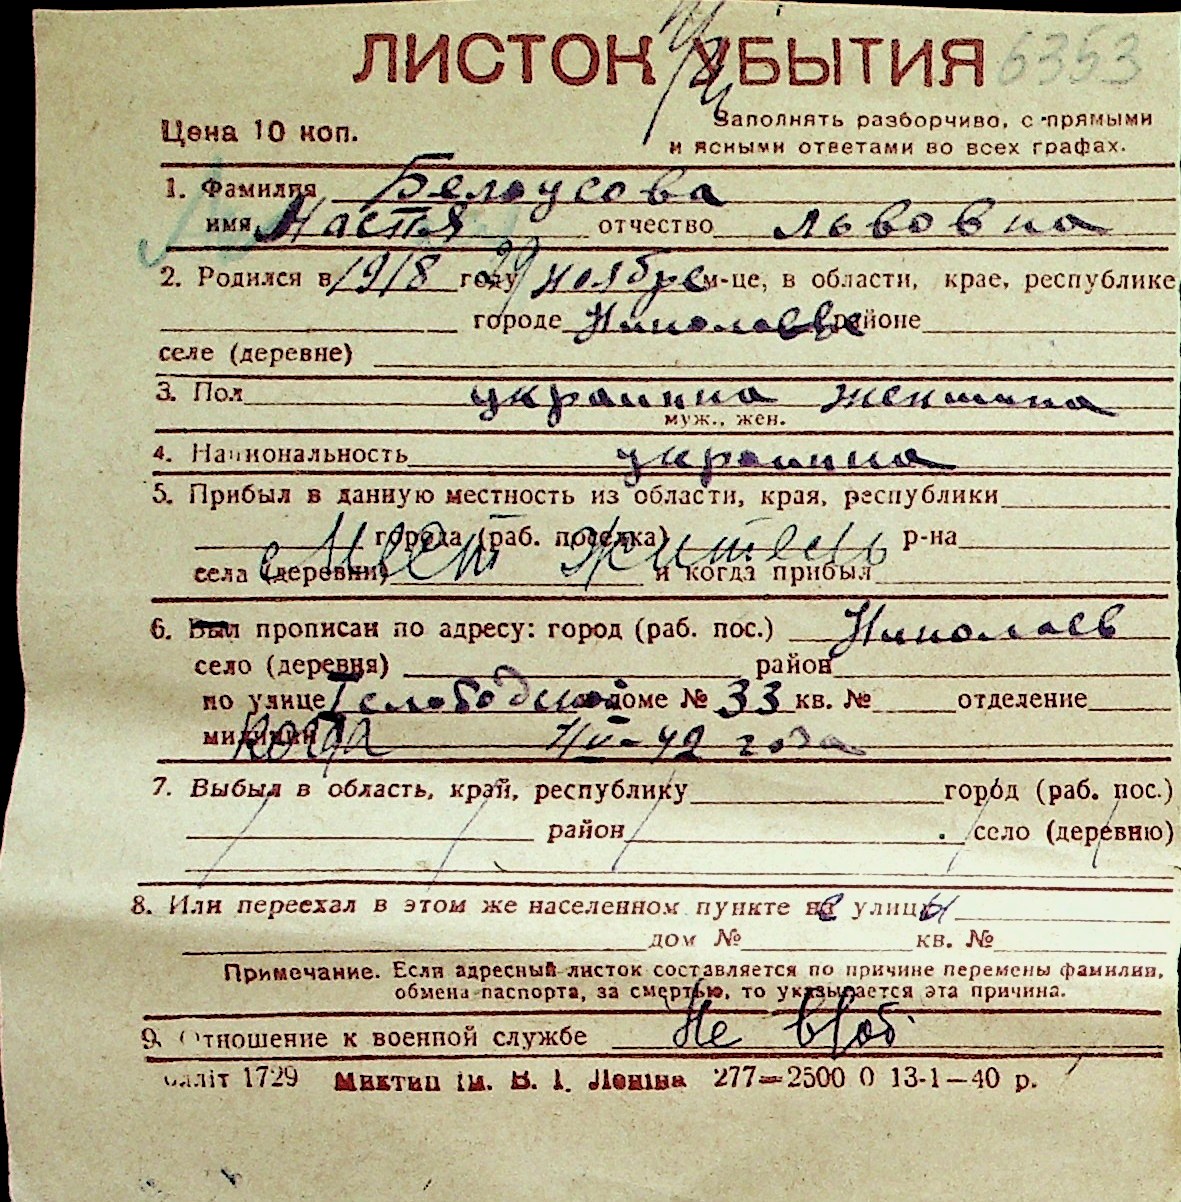 ЛИСТОК УБЫТИЯ 6353
Цена 10 коп.
Заполнять разборчиво, с прямыми
и ясными ответами во всех графах.
1. Фамилия Белоусова
имя Настя отчество Львовна
2. Родился в 1918 году 29 ноября м-це, в области, крае, республике
городе Николаеве районе
селе (деревне)
3. Пол украинка женщина
муж., жен.
4. Национальность украинка
5. Прибыл в данную местность из области, края, республики
города (раб. поселка) р-на
Мест житель
села (деревни) и когда прибыл
6. Был прописан по адресу: город (раб. пос.) Николаев
село (деревня) район
по улице Слободской доме № 33 кв. № отделение
милиции когда IV-42 года
7. Выбыл в область, край, республику город (раб. пос.)
район село (деревню)
8. Или переехал в этом же населенном пункте не улицы
дом № кв. №
Примечание. Если адресный листок составляется по причине перемены фамилии,
обмена паспорта, за смертью, то указывается эта причина.
9. Отношение к военной службе Не в/об.
1729 Миктип ім. В. І. Леніна 277—2500 0 13-1—40 р.